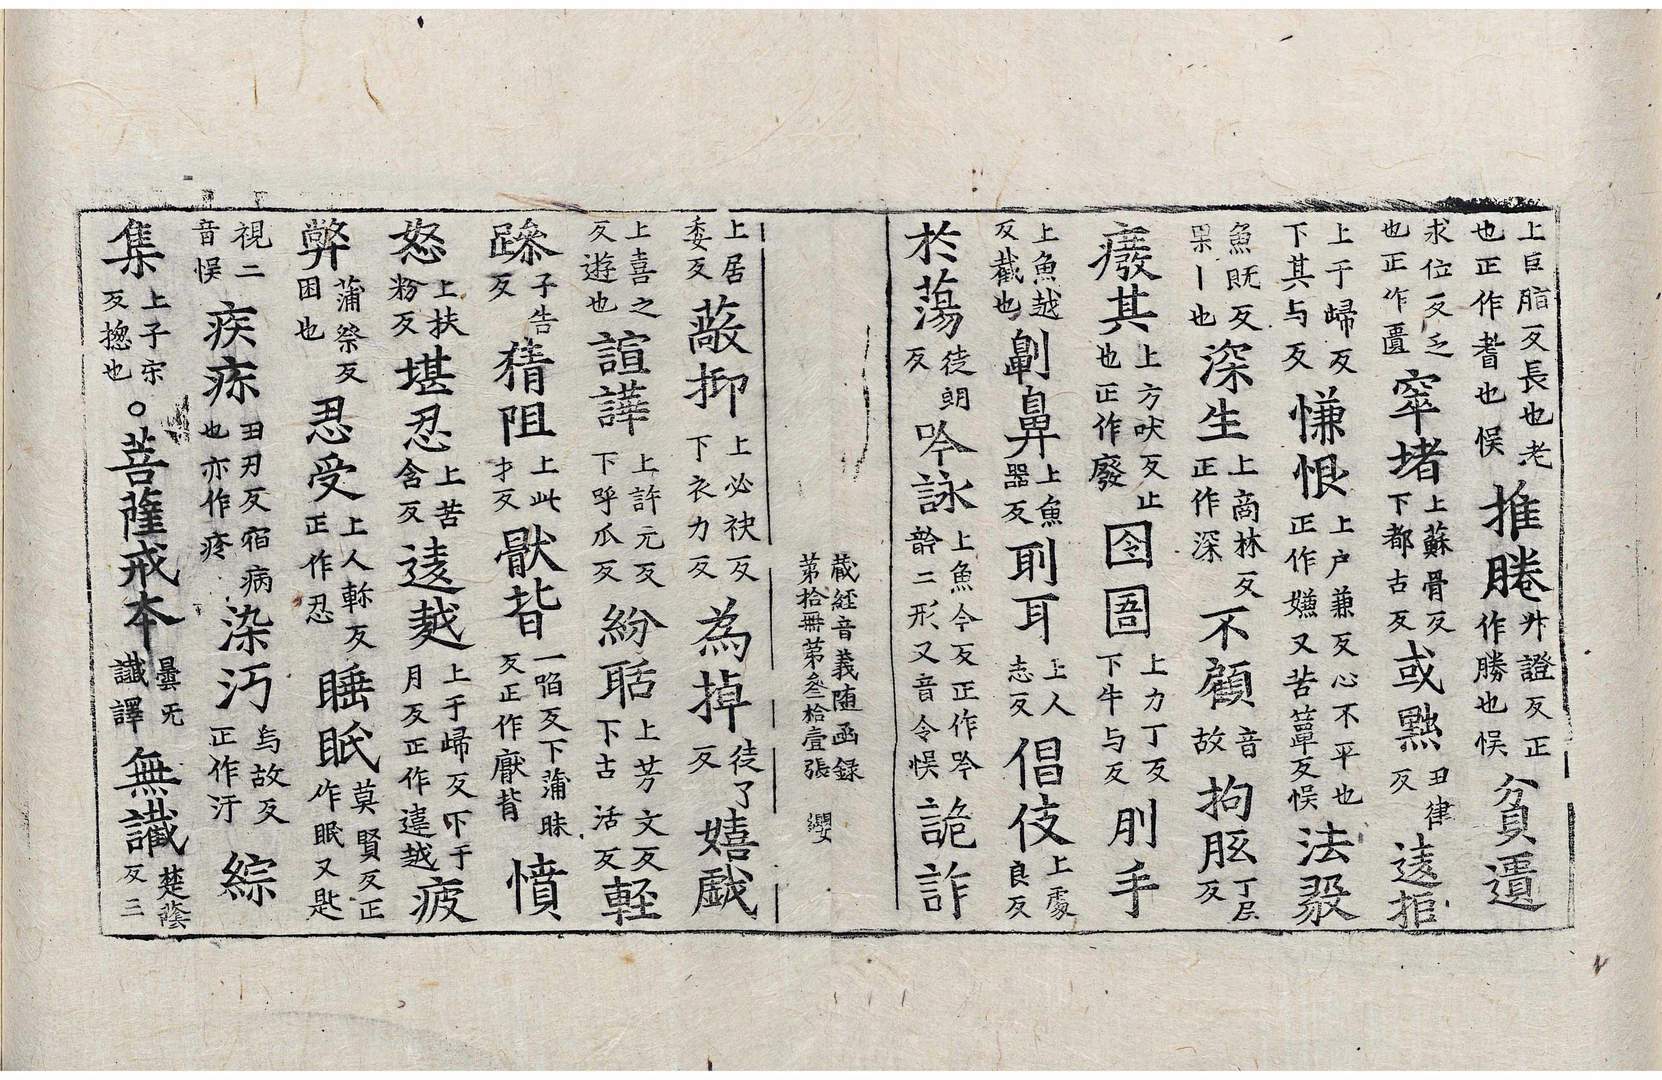 上巨脂反長也老也正作耆也悮 推勝 升證反正作勝也悮 貧遺
求位反乏也正作匱 窣堵 上蘇骨反下都古反 或黜 丑律反 違拒
上于歸反下其与反 慊恨 上户兼反心不平也正作嫌又苦簟反悮 法毅
魚既反果丨也 深生 上商林反正作深 不顧 音故 拘胘 丁尼反
癈其 上方吠反止也正作廢 囹圄 上力丁反下牛与反 刖手
上魚越反截也 劓鼻 上魚器反 刵耳 上人志反 倡伎 上處良反
於蕩 徒朗反 吟詠 上魚今反正作吟齡二形又音令悮 詭詐
藏経音義随函録第拾冊第叄拾壹張 纓
上居委反 蔽抑 上必袂反下衣力反 為掉 徒了反 嬉戱
上喜之反遊也 諠譁 上許元反下呼爪反 紛聒 上芳文反下古活反 輕
躁 子告反 猜阻 上此才反 猒背 一焰反下蒲昧反正作厭背 憤
怒 上扶粉反 堪忍 上苦含反 違越 上于歸反下于月反正作違越 疲
弊 蒲祭反困也 忍受 上人軫反正作忍 睡眠 莫賢反正作眠又匙
視二音悮 疾疢 丑刃反宿病也亦作疼 染汚 烏故反正作汙 綜
集 上子宋反揔也 。菩薩戒本 曇无讖譯 無讖 楚蔭反三